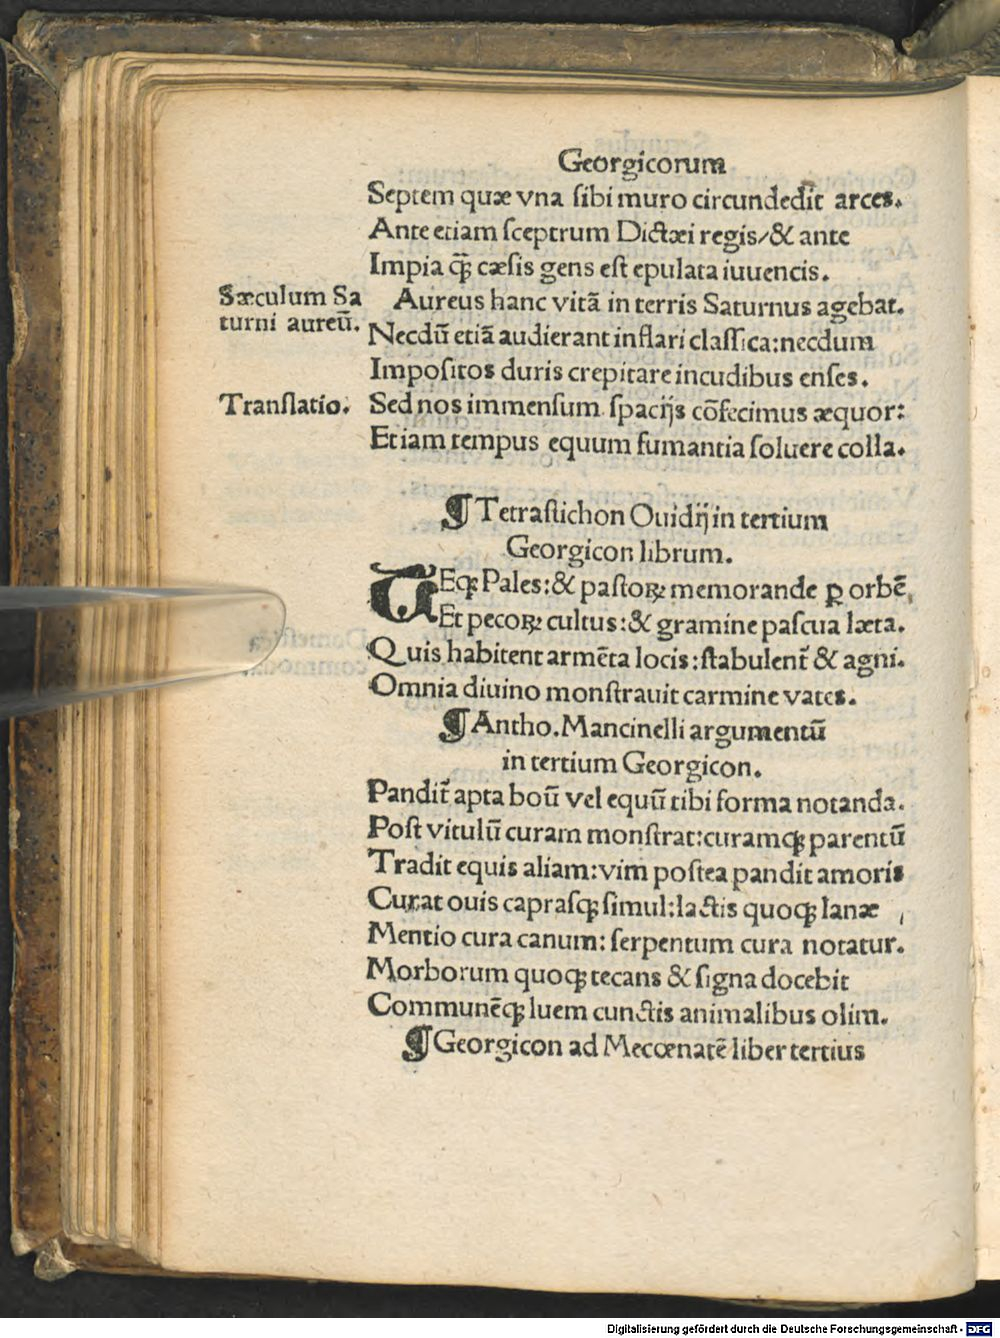 Georgicorum
Septem quæ vna sibi muro circundedit arces.
Ante etiam sceptrum Dictæi regis/& ante
Impia q̄ꝫ cæsis gens est epulata iuuencis.
Sæculum Sa
turni aureū.
Aureus hanc vitā in terris Saturnus agebat.
Necdū etiā audierant inflari classica:necdum
Impositos duris crepitare incudibus enses.
Translatio.
Sed nos immensum spacijs cōfecimus æquor:
Etiam tempus equum fumantia soluere colla.
¶ Tetrastichon Ouidij in tertium
Georgicon librum.
TEqꝫ Pales:& pastoꝝ memorande ꝑ orbē,
Et pecoꝝ cultus:& gramine pascua læta.
Quis habitent armēta locis:stabulent᷑ & agni.
Omnia diuino monstrauit carmine vates.
¶ Antho.Mancinelli argumentū
in tertium Georgicon.
Pandit᷑ apta boū vel equū tibi forma notanda.
Post vitulū curam monstrat:curamqꝫ parentū
Tradit equis aliam:vim postea pandit amoris
Curat ouis caprasqꝫ simul:lactis quoqꝫ lanæ
Mentio cura canum: serpentum cura notatur.
Morborum quoqꝫ tecans & signa docebit
Communēqꝫ luem cunctis animalibus olim.
¶ Georgicon ad Mecœnatē liber tertius
Digitalisierung gefördert durch die Deutsche Forschungsgemeinschaft - DFG